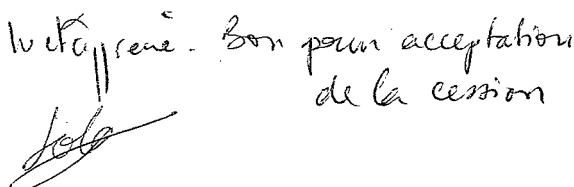 lu et approuvé. Bon pour acceptation
de la cession